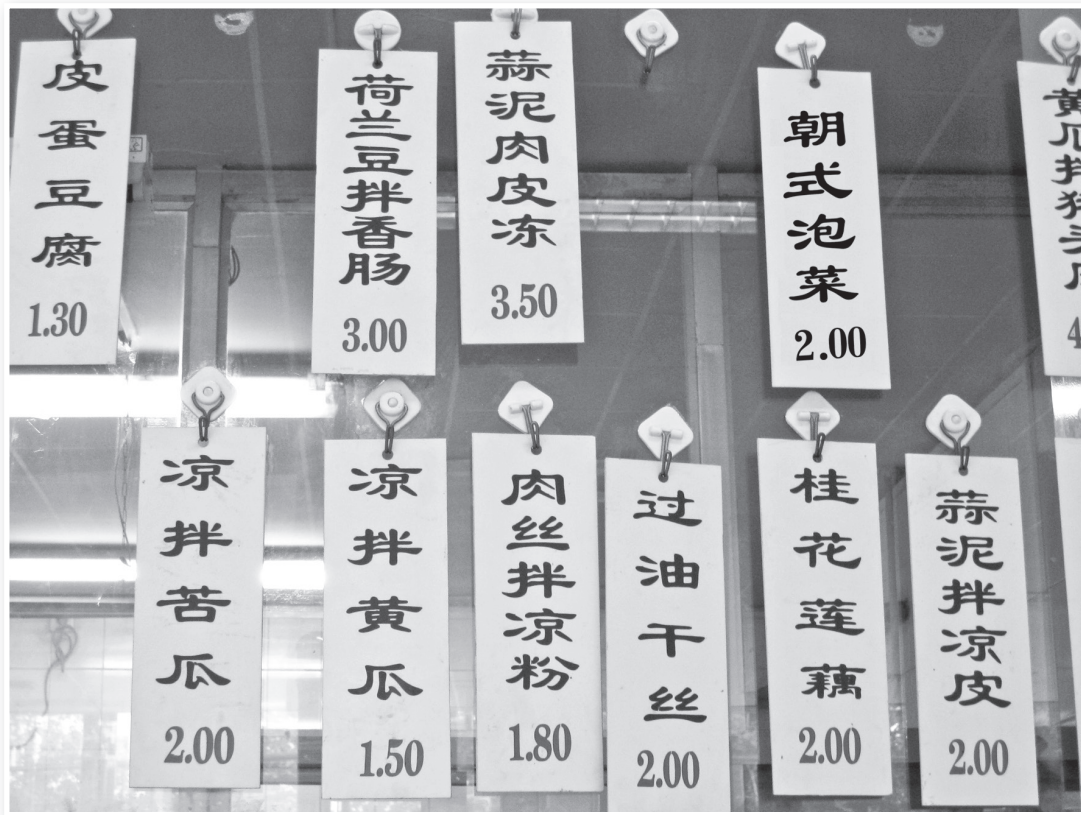 皮蛋豆腐
1.30
荷兰豆拌香肠
3.00
蒜泥肉皮冻
3.50
朝式泡菜
2.00
黄瓜拌猪头肉
4
凉拌苦瓜
2.00
凉拌黄瓜
1.50
肉丝拌凉粉
1.80
过油干丝
2.00
桂花莲藕
2.00
蒜泥拌凉皮
2.00